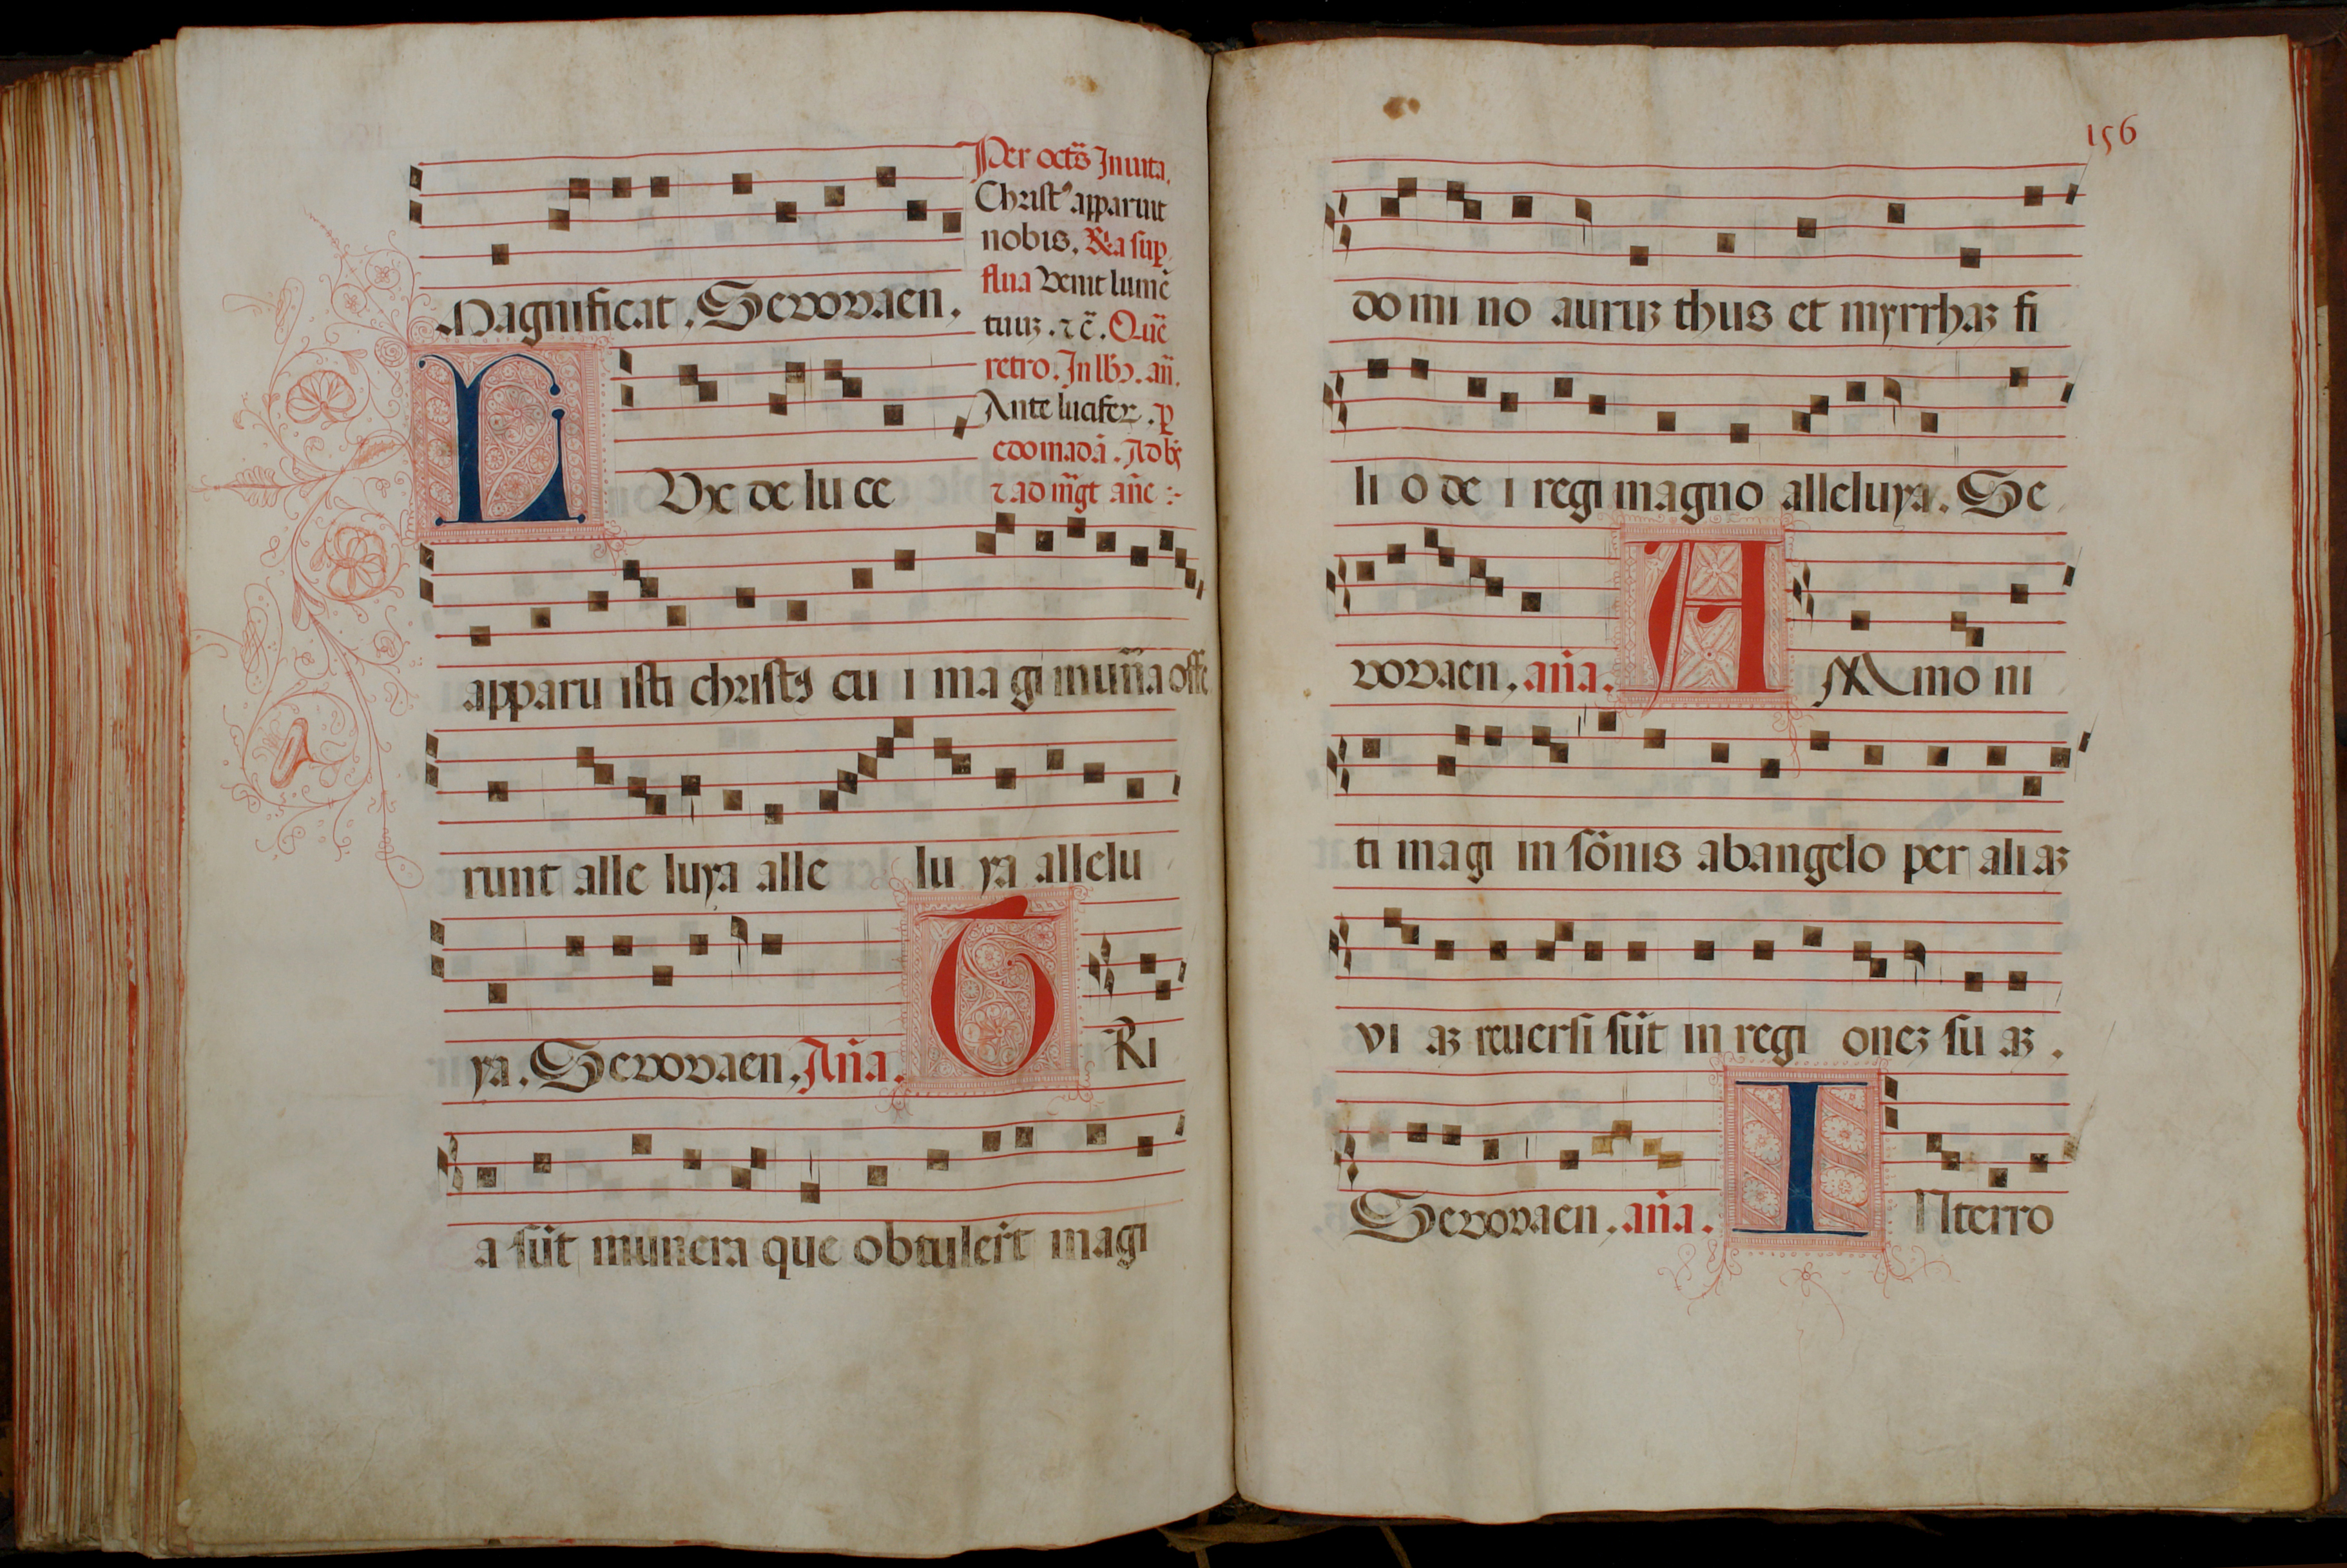 Magnificat. Sevovaen.
Per octs̄ Inuita.
Christꝰ apparuit
nobis. R̃ia sup̱
flua Venit lumē
tuuʒ. ⁊c̄. Quē
retro. In lb̄. añ.
Ante lucifer. ꝑ
edomadā. Ad bñ
⁊ ad m̄gt añe :-
LVx de lu ce
apparu isti christꝰ cu i ma gi mun̄a offe
runt alle luya alle lu ya allelu
ya. Sevovaen, Aña.
TRi
a sūt munera que obtulert̄ magi
156
do mi no auruʒ thus et myrrhaʒ fi
li o de i regi magno alleluya. Se
vovaen, aña. AMmo ni
ti magi in sōnis ab angelo per ali aʒ
vi aʒ reuersi sūt in regi oneʒ su aʒ.
Sevovaen, aña. INterro